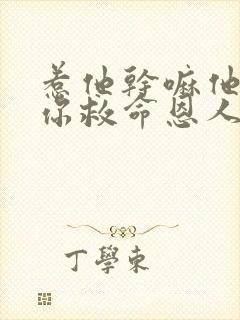 惹他幹嘛他
你救命恩人
丁學東